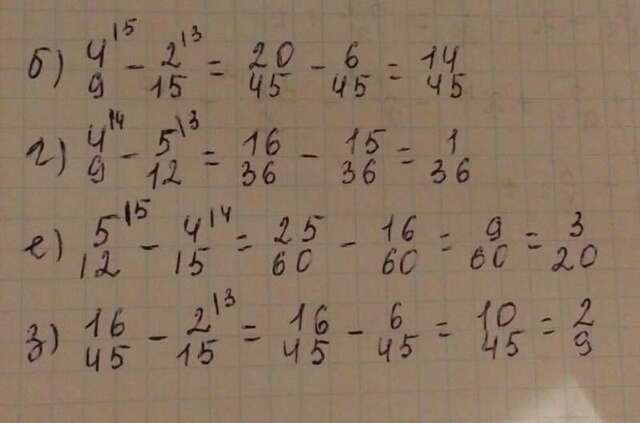 б) 4/9 \5 − 2/15 \3 = 20/45 − 6/45 = 14/45
г) 4/9 \4 − 5/12 \3 = 16/36 − 15/36 = 1/36
е) 5/12 \5 − 4/15 \4 = 25/60 − 16/60 = 9/60 = 3/20
з) 16/45 − 2/15 \3 = 16/45 − 6/45 = 10/45 = 2/9